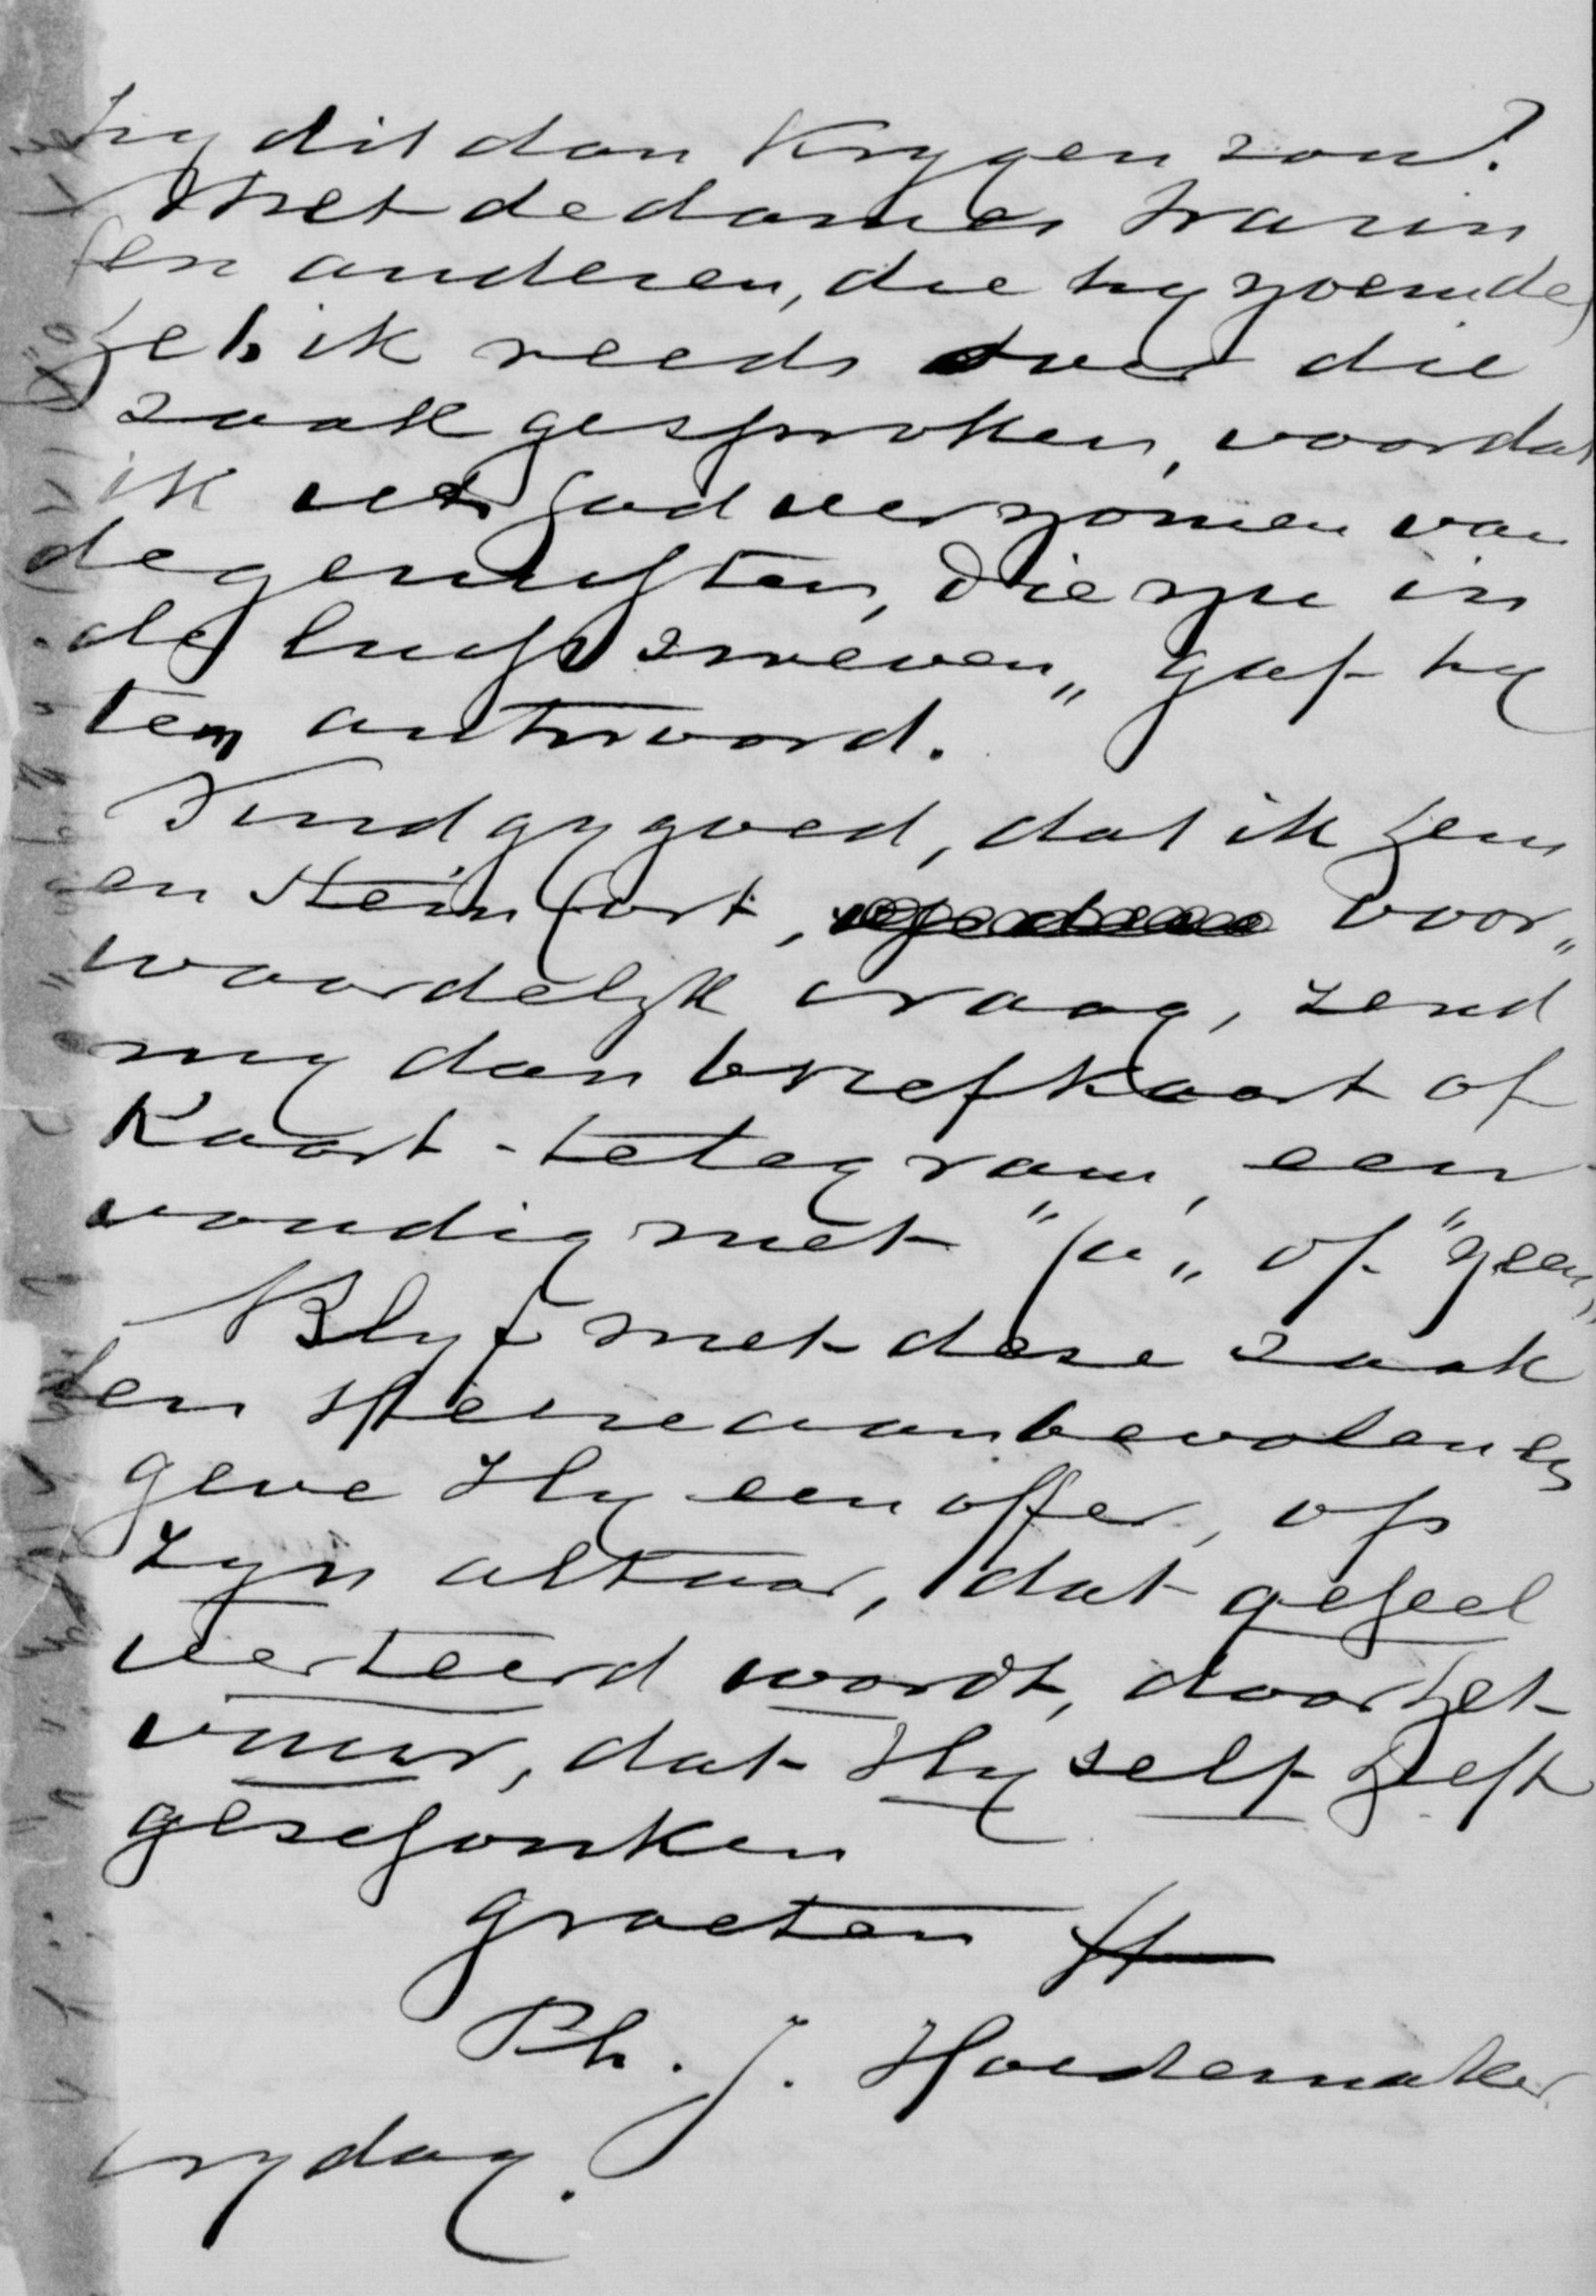 hy dit dan Krygen zou?
Met de dames
en anderen, die hy noemde,
heb ik reeds over die
zaak gesproken, voordat
ik
de geruchten, die in
de lucht zweven" gaf hy
ten antwoord.
Vind gy goed, dat ik hem
en Steinfort, voor„
waardelyk vraag, zend
my dan briefkaart of
Kaart-telegram, een
voudig met "ja„ of "neen„
Blyf met deze zaak
en Heere aanbevolen en
geve Hy een offer, op
Zyn altaar, dat geheel
verteerd wordt, door het
vuur, dat Hy zelf heeft
geschonken
groeten
Ph. J. Hoedemaker
vrydag.